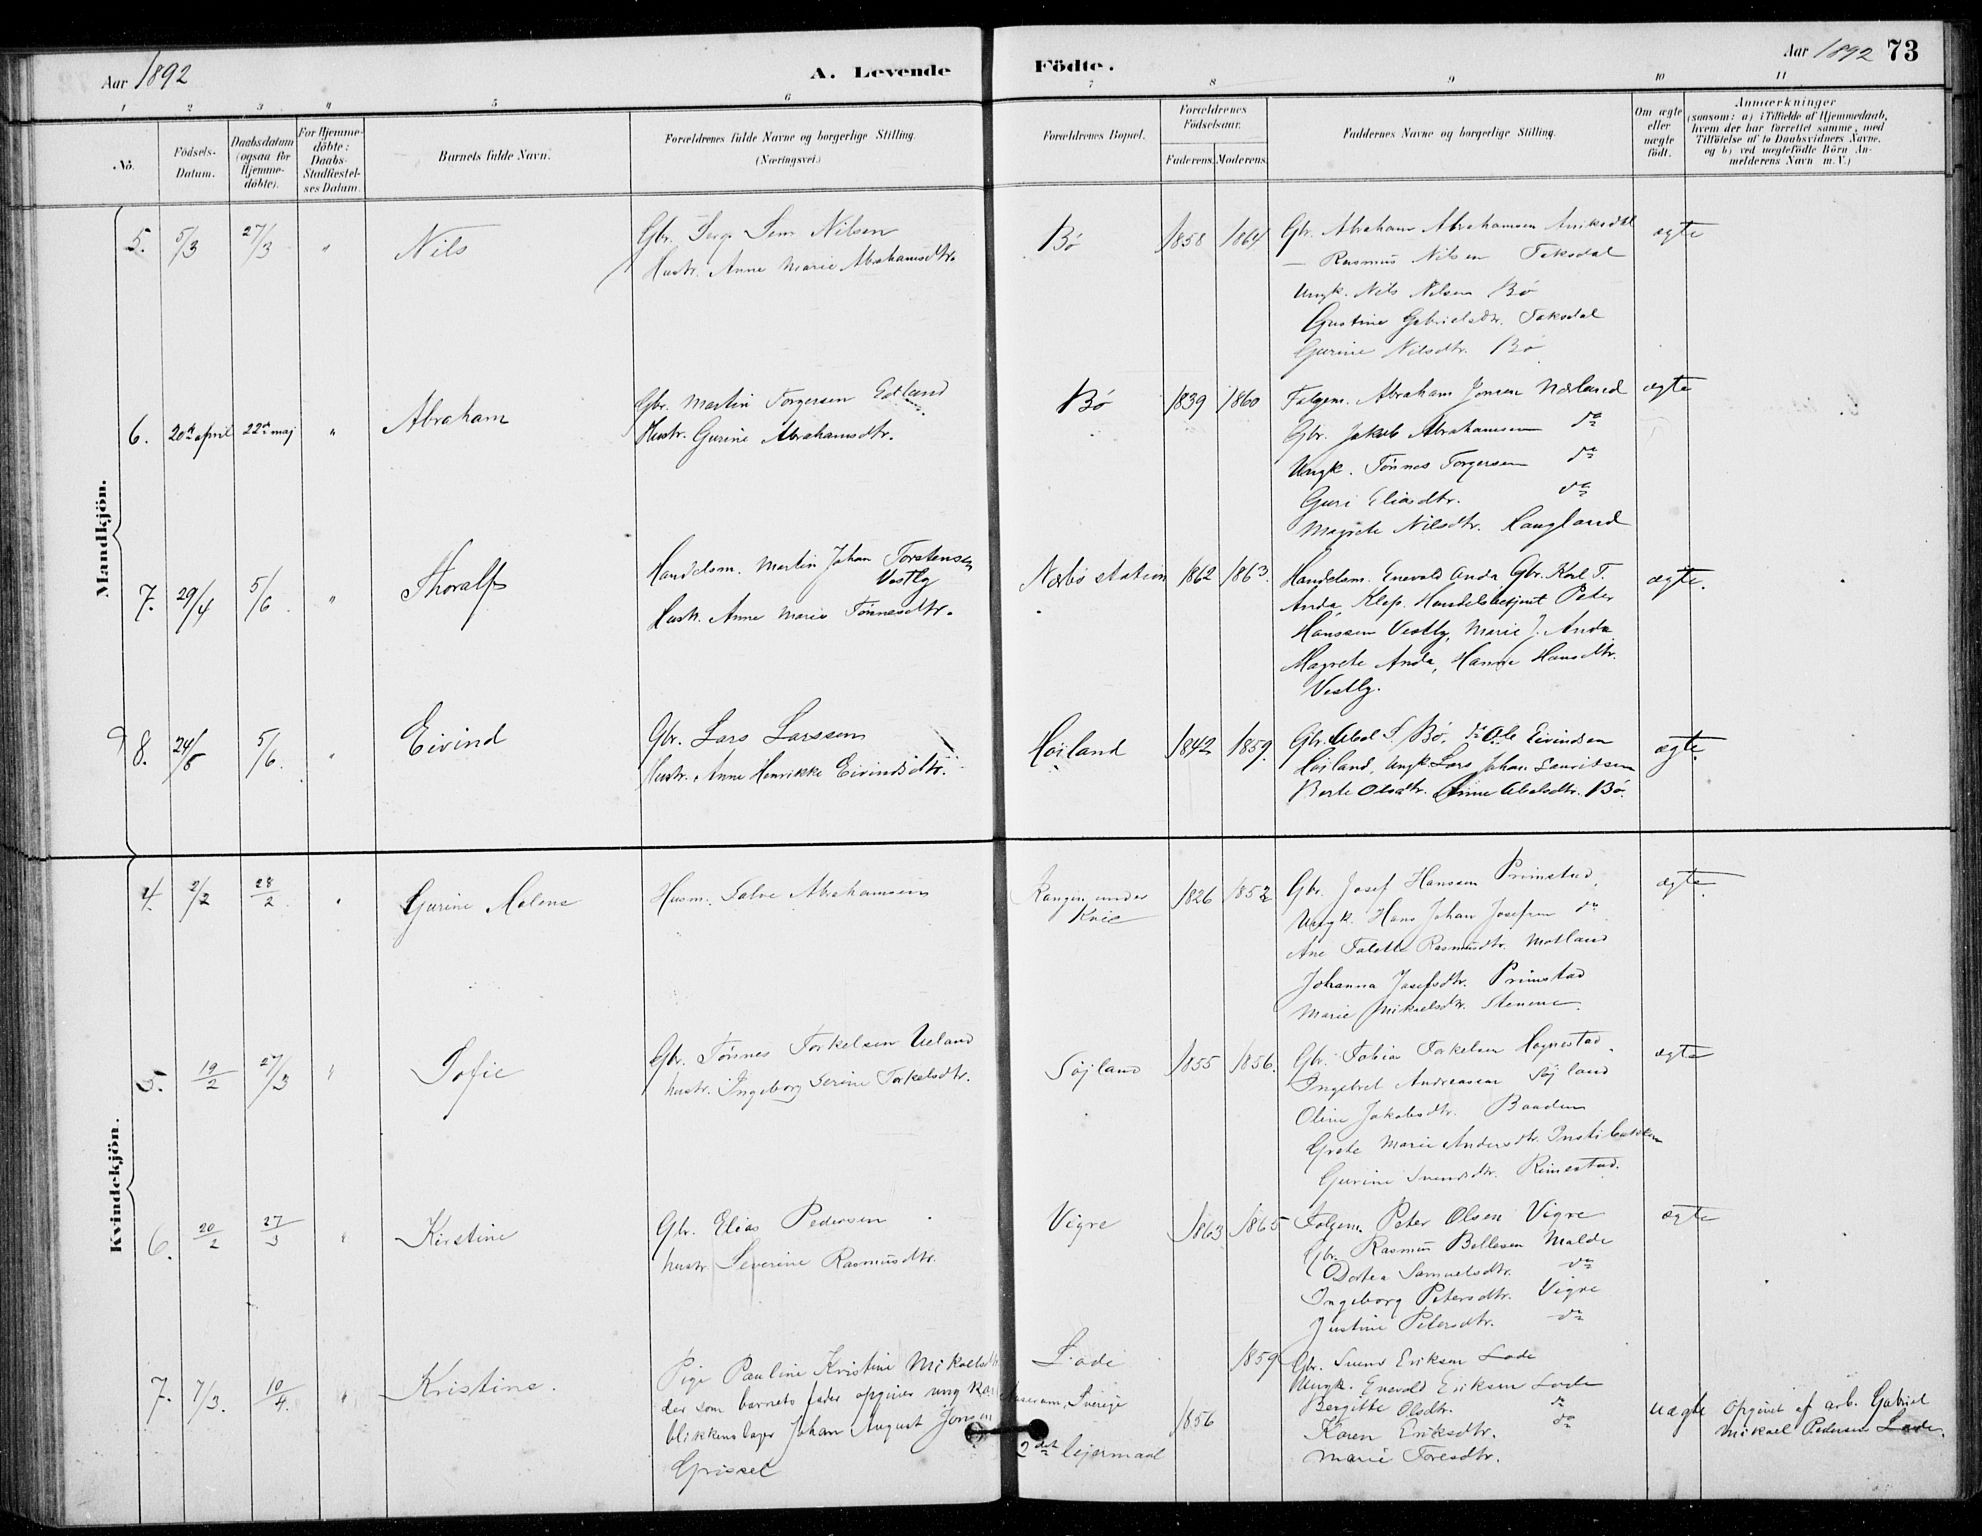 Aar 1892
A. Levende Födte.
Aar 1892 73
1 2 3 4 5 6 7 8 9 10 11
No.
Födsels-Datum.
Daabsdatum (ogsaa for Hjemmedöbte).
For Hjemmedöbte: Daabs-Stadfæstelses Datum.
Barnets fulde Navn.
Forældrenes fulde Navne og borgerlige Stilling.
(Næringsvei.)
Forældrenes Bopæl.
Forældrenes Födselsaar.
Faderens. Moderens.
Faddernes Navne og borgerlige Stilling.
Om ægte eller uægte födt.
Anmærkninger
(saasom: a) i Tilfælde af Hjemmedaab,
hvem der har forrettet samme, med
Tilföielse af to Daabsvidners Navne,
og b) ved uægtefödte Börn An-
melderens Navn m. V.)
Mandkjön.
5. 5/3 27/3 " Nils
Gbr. Sem Nilsen
Hustr. Anne Marie Abrahamsdtr.
Bø 1858 1864
Gbr. Abraham Abrahamsen
— Rasmus Nilsen Taksdal
Ungk. Nils Nilsen Bø
Gustine Gabrielsdtr. Taksdal
Gurine Nilsdtr. Bø
ægte
6. 20de april 22de maj " Abraham
Gbr. Martin Torgersen Gotland
Hustr. Gurine Abrahamsdtr.
Bø 1839 1860
Folgem. Abraham Jonsen Nærland
Gbr. Jakob Abrahamsen do
Ungk. Tønnes Torgersen do
Guri Eliasdtr. do
Magrete Nilsdtr. Haugland
ægte
7. 29/4 5/6 " Thoralf
Handelsm. Martin Johan Torstensen
Vestly
Hustr. Anne Marie Tønnesdtr.
Nærbø station 1862 1863.
Handelsm. Enevald Anda Gbr. Karl T.
Anda, Klep. Handelsbetjent Peter
Hanssen Vestly, Marie J. Anda
Magrete Anda, Hanne Hansdtr.
Vestly.
ægte.
8. 24/5 5/6. " Eivind
Gbr. Lars Larssen
Hustr. Anne Henrikke Eivindsdtr.
Høiland 1842 1859.
Gbr. Abel S. Bø, do Ole Eivindsen
Høiland, Ungk. Lars Johan Lauritsen
Berte Olsdtr. Anne Abelsdtr. Bø.
ægte.
Kvindekjön.
4. 2/2 28/2 " Gurine Malene
Husm. Salve Abrahamsen
under Kvie 1826 1852
Gbr. Josef Hanssen Primstad,
Ungk. Hans Johan Josefsen do
Ane Rasmusdtr. Motland
Johanna Josefsdtr. Primstad
Marie Mikaelsdtr. Stenene.
ægte
5. 19/2 27/3 " Sofie
Gbr. Tønnes Torkelsen Ueland
hustr. Ingeborg Serine Torkelsdtr.
Søjland 1855 1856.
Gbr. Tobias Torkelsen Hognestad.
Ingebret Andreassen Søjland
Oline Jakobsdtr. Baaden
Grete Marie Andersdtr.
Gurine Svendsdtr. Rimestad.
ægte
6. 20/2 27/3 " Kirstine
Gbr. Elias Pedersen
hustr. Severine Rasmusdtr.
Vigre 1863 1865
Folgem. Peter Olsen Vigre
Gbr. Rasmus Bellesen Malde
Dortea Samuelsdtr. do
Ingeborg Petersdtr. Vigre
Justine Petersdtr. do
ægte
7. 7/3. 10/4. " Kristine.
Pige Pauline Kristine Mikaelsdtr.
der som barnets fader opgiver ungkarl
blikkenslager Johan August Jonsen
Lode 1859
Sverige 1856
2det lejermaal
Gbr. Svend Eriksen Lode
Ungk. Enevald Eriksen Lode
Bergitte Olsdtr. do
Karen Eriksdtr. do
Marie Toresdtr.
uægte
Opgivet af arb. Gabriel
Mikael Pedersen Lode.